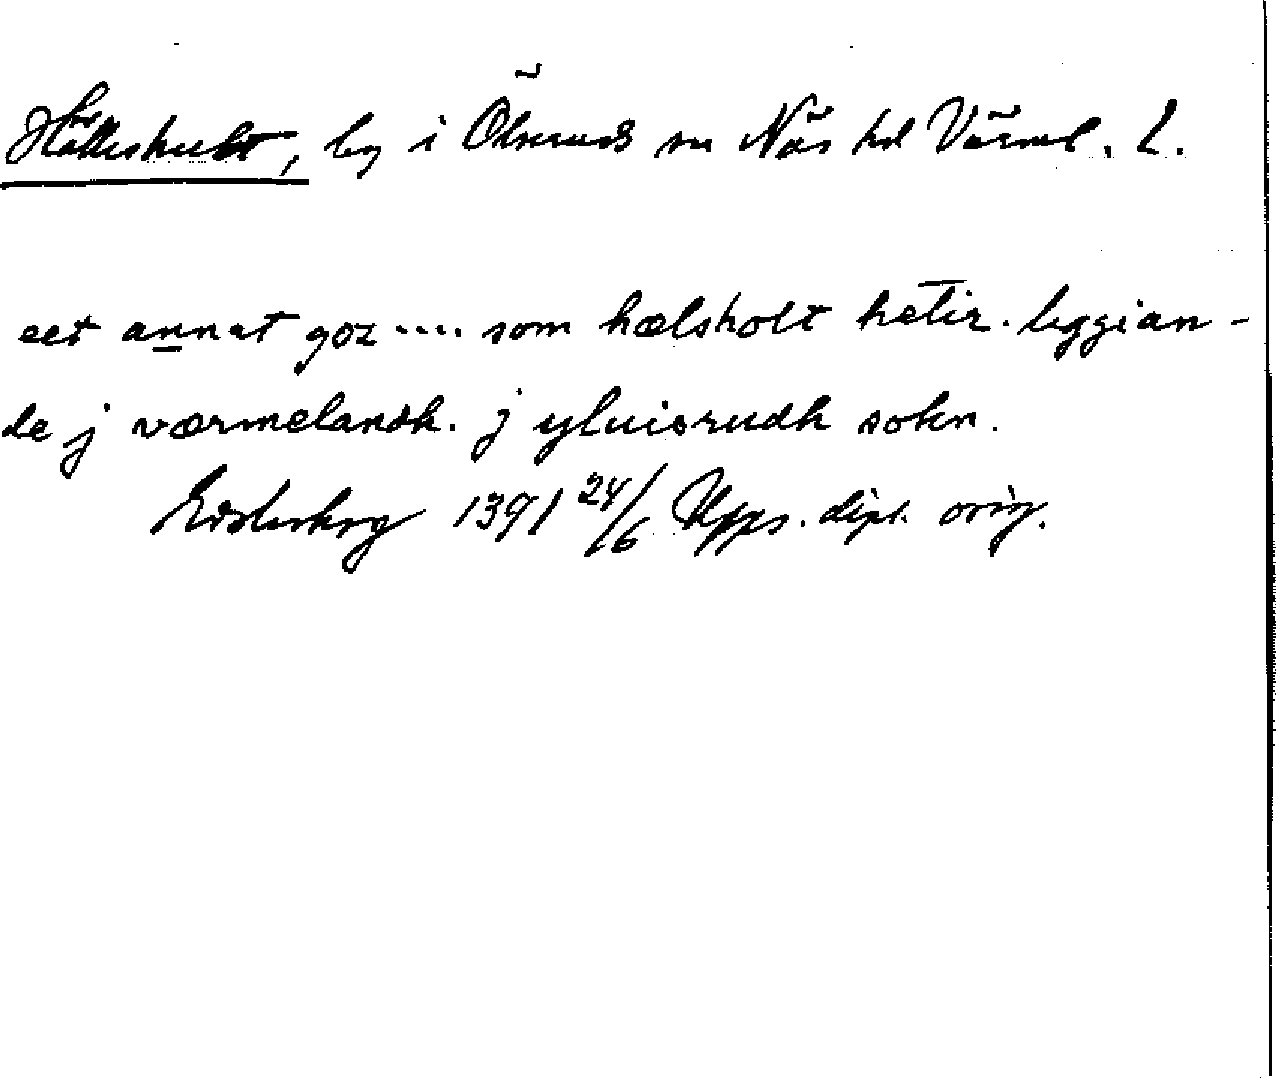 Hälleshult, by i Ölserud sn Näs hd Värml. L.
eet annat goz .... som hælsholt hetir. liggian-
de j værmelandh. j yluisrudh sokn.
1391 24/6 Upps. dipl. orig.